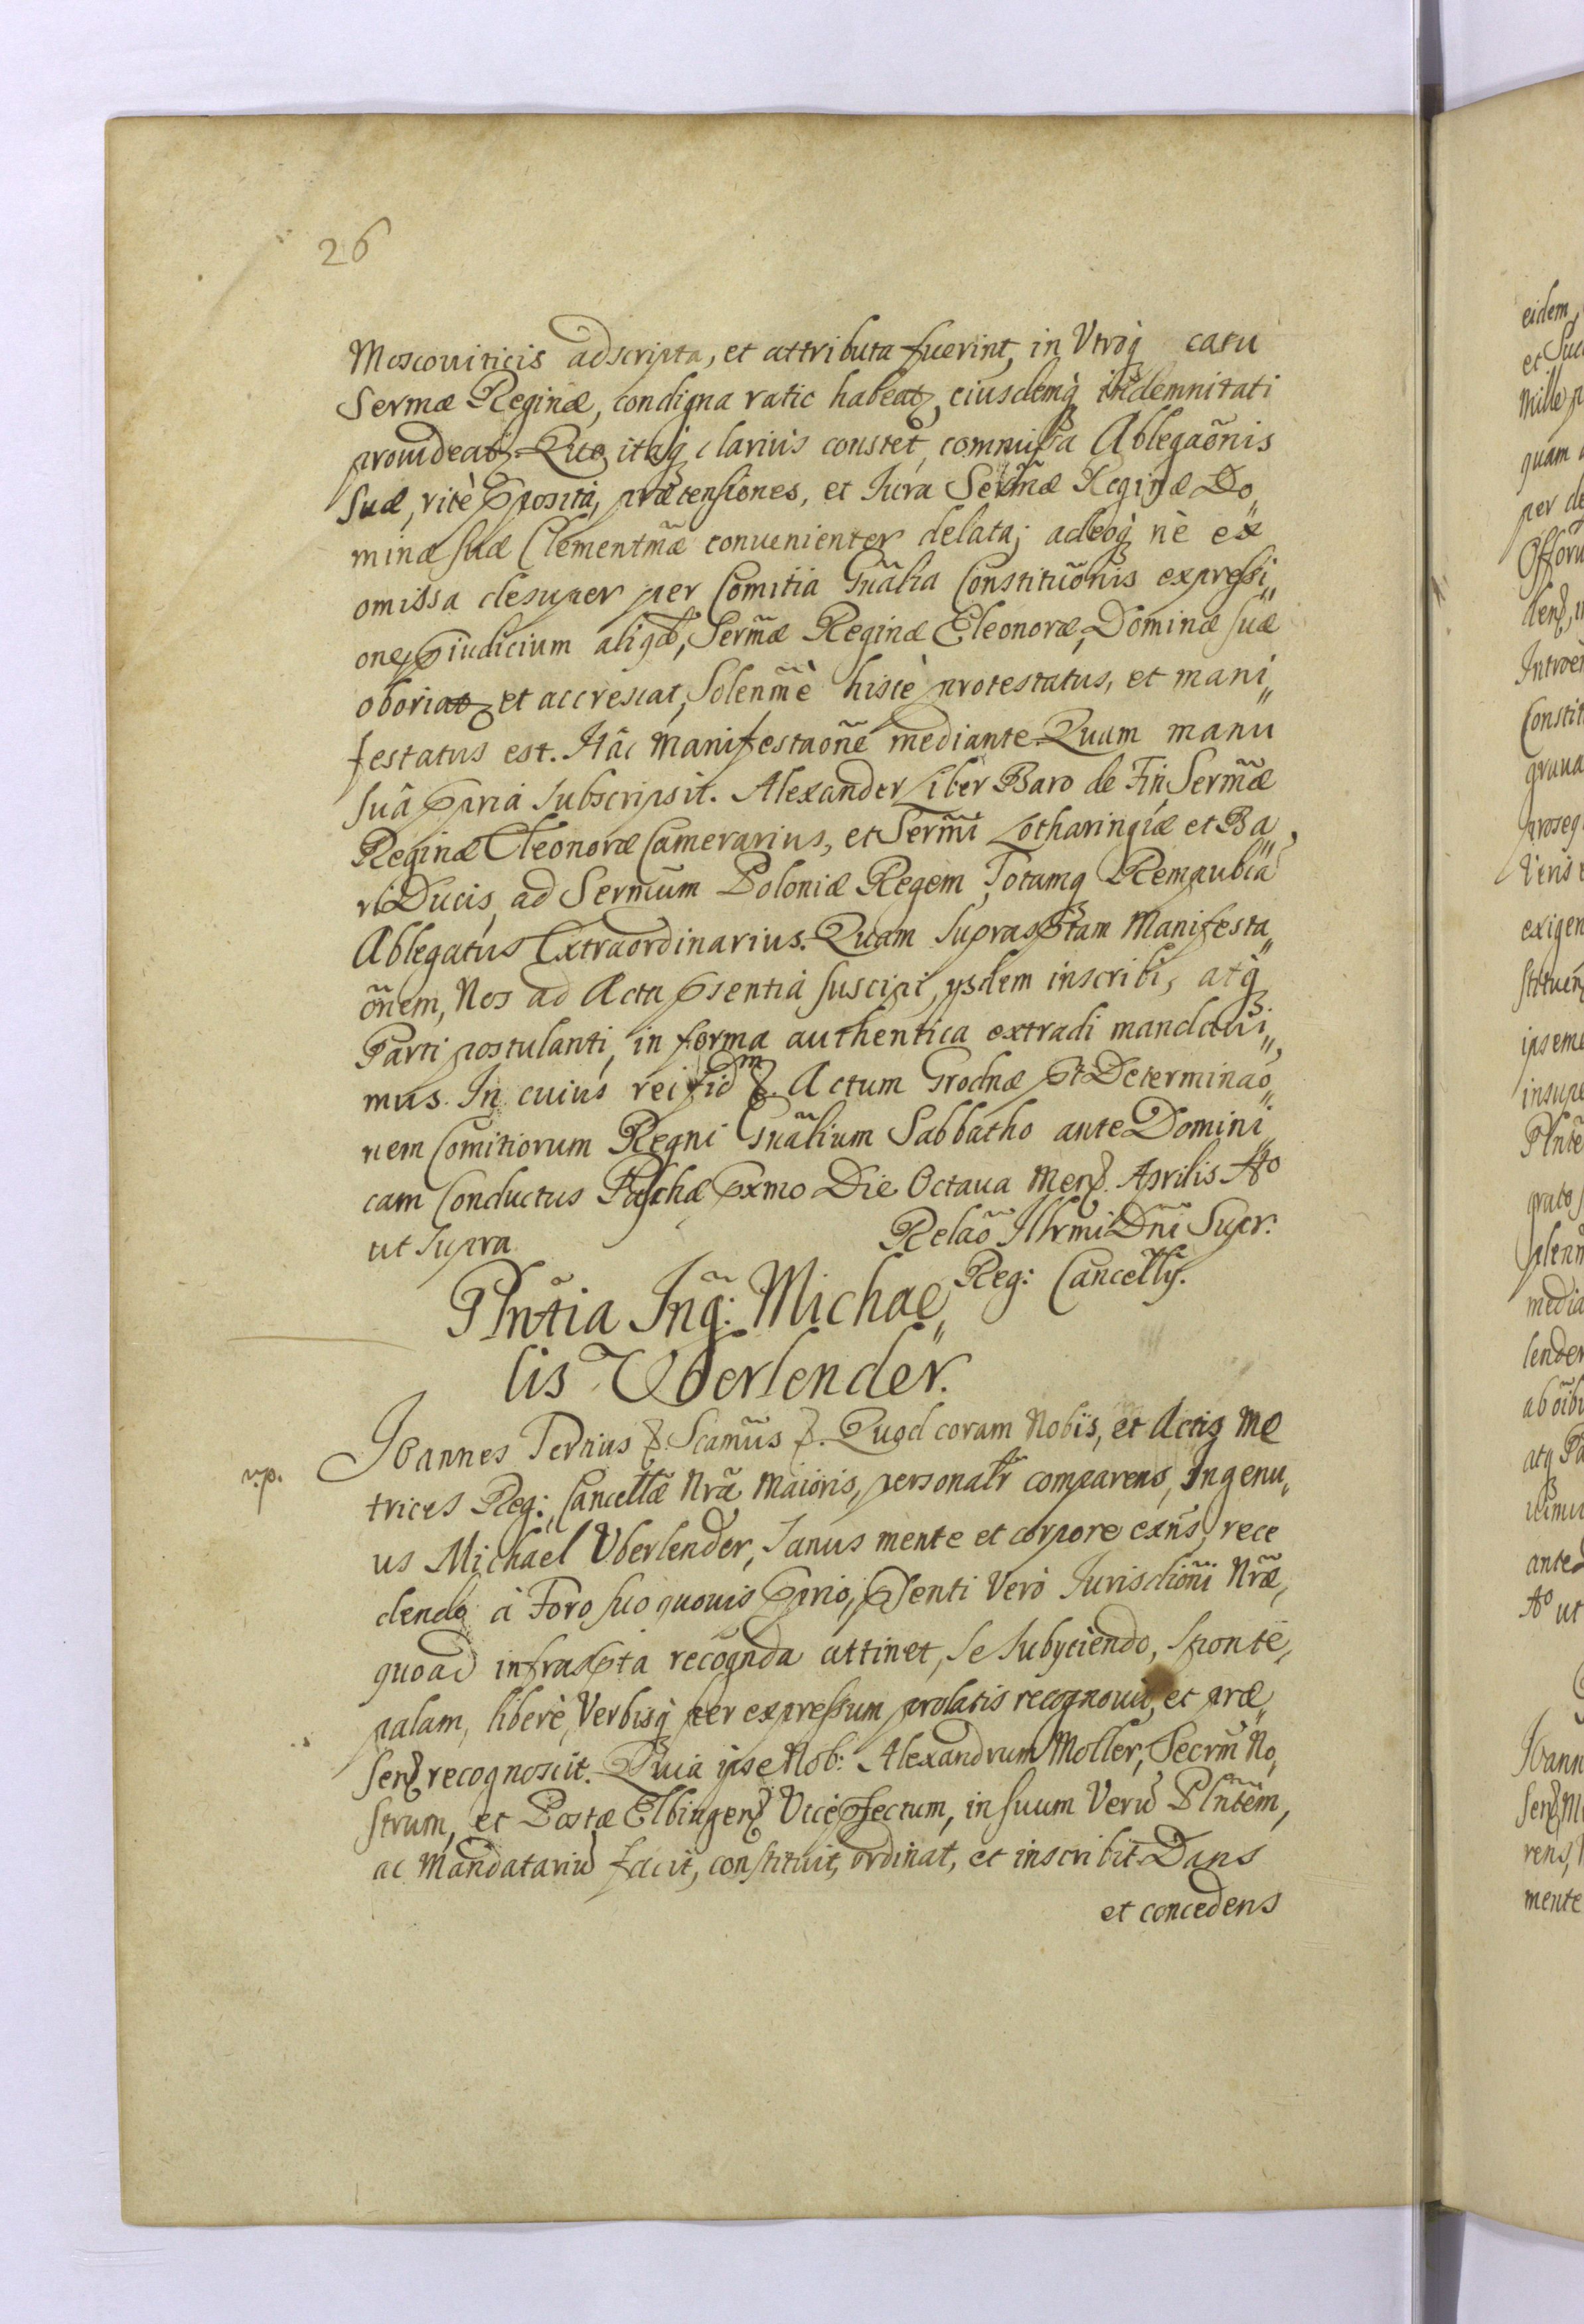 26
Moscouiticis adscripta, et attributa fuerint, in Vtroq̀ casu
Sermæ Reginæ, condigna ratio habeat̃, eiusdemq̀ indemnitati
prouideat̃. Quo itaq̀ clarius constet, commissa Ablegaõnis
suæ, ritè p̱posita, prætensiones, et Iura Serm̃æ Reginæ Do„
minæ suæ Clementm̃æ conuenienter delata; adeoq̀ nè ex
omissa desuper per Comitia Gnãlia Constituõnis expressi„
one, p̱iudicium aliqd̃, Serm̃æ Reginæ Eleonoræ, Dominæ suæ
oboriat̃, et accrescat, Solenm̃è hisce protestatus, et mani„
festatus est. Hâc Manifestaõne mediante. Quam manu
suâ p̱pria Subscripsit. Alexander Liber Baro de Fin, Serm̃æ
Reginæ Eleonoræ Camerarius, et Serm̃i Lotharingiæ et Ba„
ri Ducis, ad Sermũm Poloniæ Regem, Totamq̀ Rempublcã
Ablegatus Extraordinarius. Quam suprasp̱tam Manifesta„
õnem, Nos ad Acta p̱sentia suscipi, ysdem inscribi, atq̀
Parti postulanti, in forma authentica extradi mandaui„
mus. In cuius rei fidm̃ &. Actum Grodnæ p̱t Determinaõ„
nem Comitiorum Regni Gnãlium Sabbatho ante Domini„
cam Conductus Paschæ p̱xmo Die Octaua Mens̃. Aprilis Aõ
ut supra
Relaõ Illrmi Dñi Supr.
Reg: Cancellÿ.
Plñtia Ing̃: Michae„
lis Vberlender.
v.p.
Ioannes Tertius &. Scamũs &. Quod coram Nobis, et Actis Me
trices Reg: Cancellæ Nrã Maioris, personalr̃ comparens, Ingenu„
us Michael Vberlender, Sanus mente et corpore exñs, rece
dendo à Foro suo quouis p̱prio, p̱senti Verò Iurisdiõni Nrãe,
quoad infrasp̱ta recõgnda attinet, se subyciendo, sponte,
palam, liberè, Verbisq̀ per expressum prolatis recognouit, et præ„
sens̃ recognoscit. Quia ipse Nob: Alexandrum Moller, Secrm̃ No„
strum, et Postæ Elbingens̃ Vicep̱fectum, in suum Verũ Plñtem,
ac Mandatariũ facit, constituit, ordinat, et inscribit. Dans
et concedens